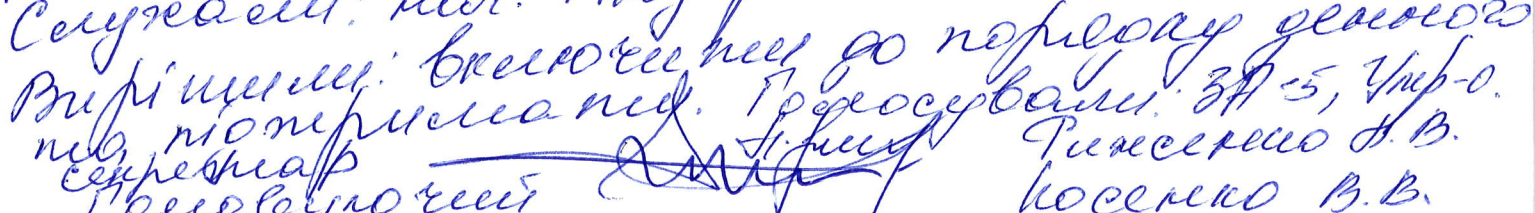 Слухали:
Вирішили: включити до порядку денного
та підтримати. Голосували: ЗА-5, Утр-0.
секретар Рижсенко В.
Головуючий Косенко В.В.